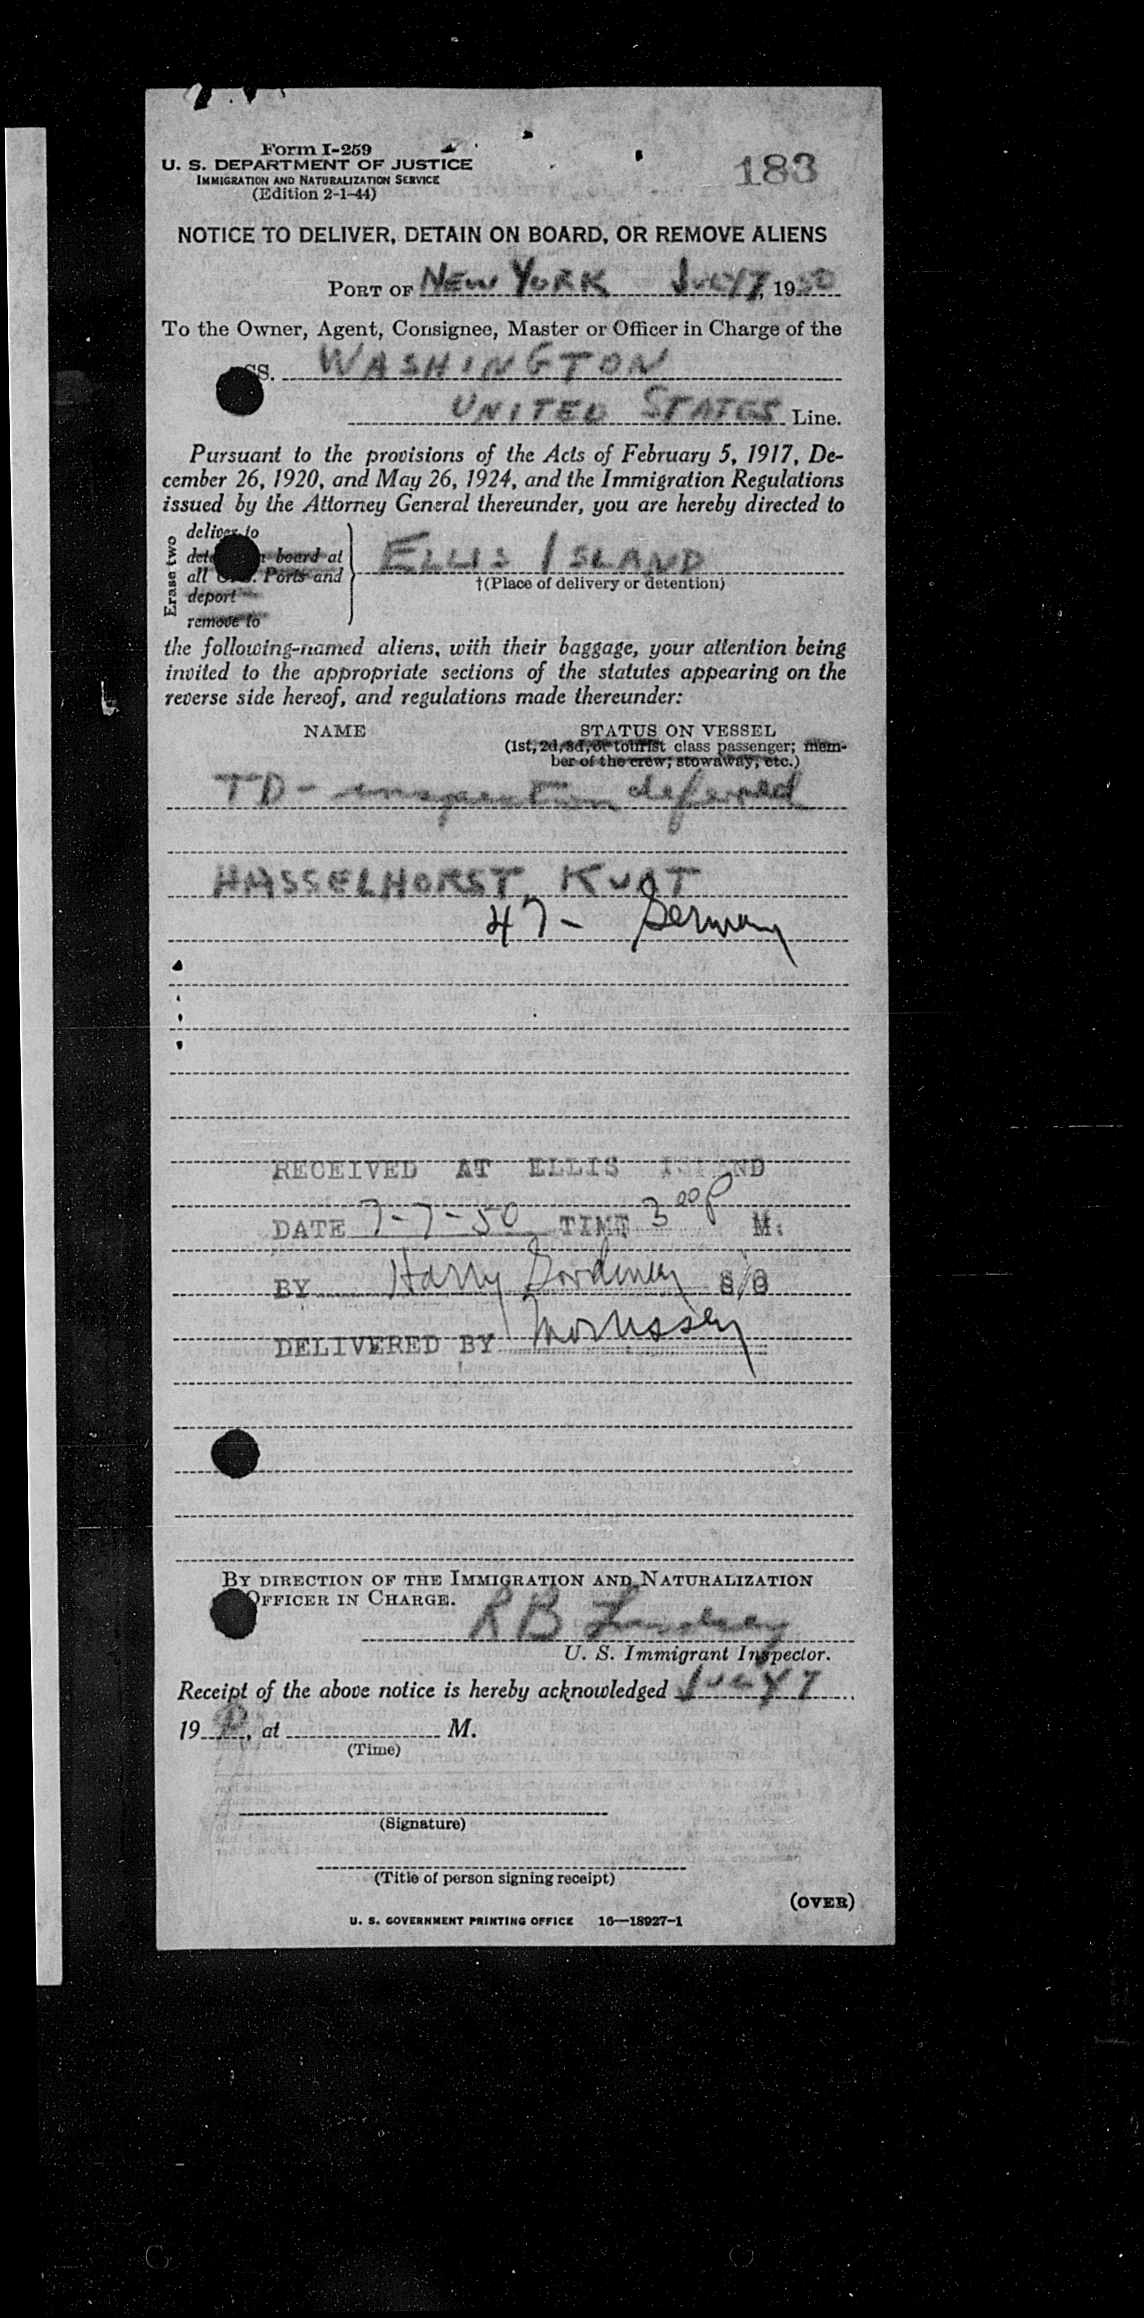 Form I-259
U. S. DEPARTMENT OF JUSTICE
IMMIGRATION AND NATURALIZATION SERVICE
(Edition 2-1-44)
183
NOTICE TO DELIVER, DETAIN ON BOARD, OR REMOVE ALIENS
PORT OF NEW YORK JULY 7, 1950
To the Owner, Agent, Consignee, Master or Officer in Charge of the
SS. WASHINGTON
UNITED STATES Line.
Pursuant to the provisions of the Acts of February 5, 1917, De-
cember 26, 1920, and May 26, 1924, and the Immigration Regulations
issued by the Attorney General thereunder, you are hereby directed to
Erase two
deliver to
board at
all Ports and
deport
remove to
ELLIS ISLAND
†(Place of delivery or detention)
the following-named aliens, with their baggage, your attention being
invited to the appropriate sections of the statutes appearing on the
reverse side hereof, and regulations made thereunder:
NAME STATUS ON VESSEL
(1st, 2d, 3d, or tourist class passenger; mem-
ber of the crew; stowaway, etc.)
TD - inspection deferred
HASSELHORST, KURT
47 - Germany
RECEIVED AT ELLIS ISLAND
DATE 7-7-50 TIME 3 00 P M.
BY Harry
DELIVERED BY Morrissey
BY DIRECTION OF THE IMMIGRATION AND NATURALIZATION
OFFICER IN CHARGE.
RB Lindsey
U. S. Immigrant Inspector.
Receipt of the above notice is hereby acknowledged JULY 7
19 , at M.
(Time)
(Signature)
(Title of person signing receipt)
(OVER)
U. S. GOVERNMENT PRINTING OFFICE 16—18927-1